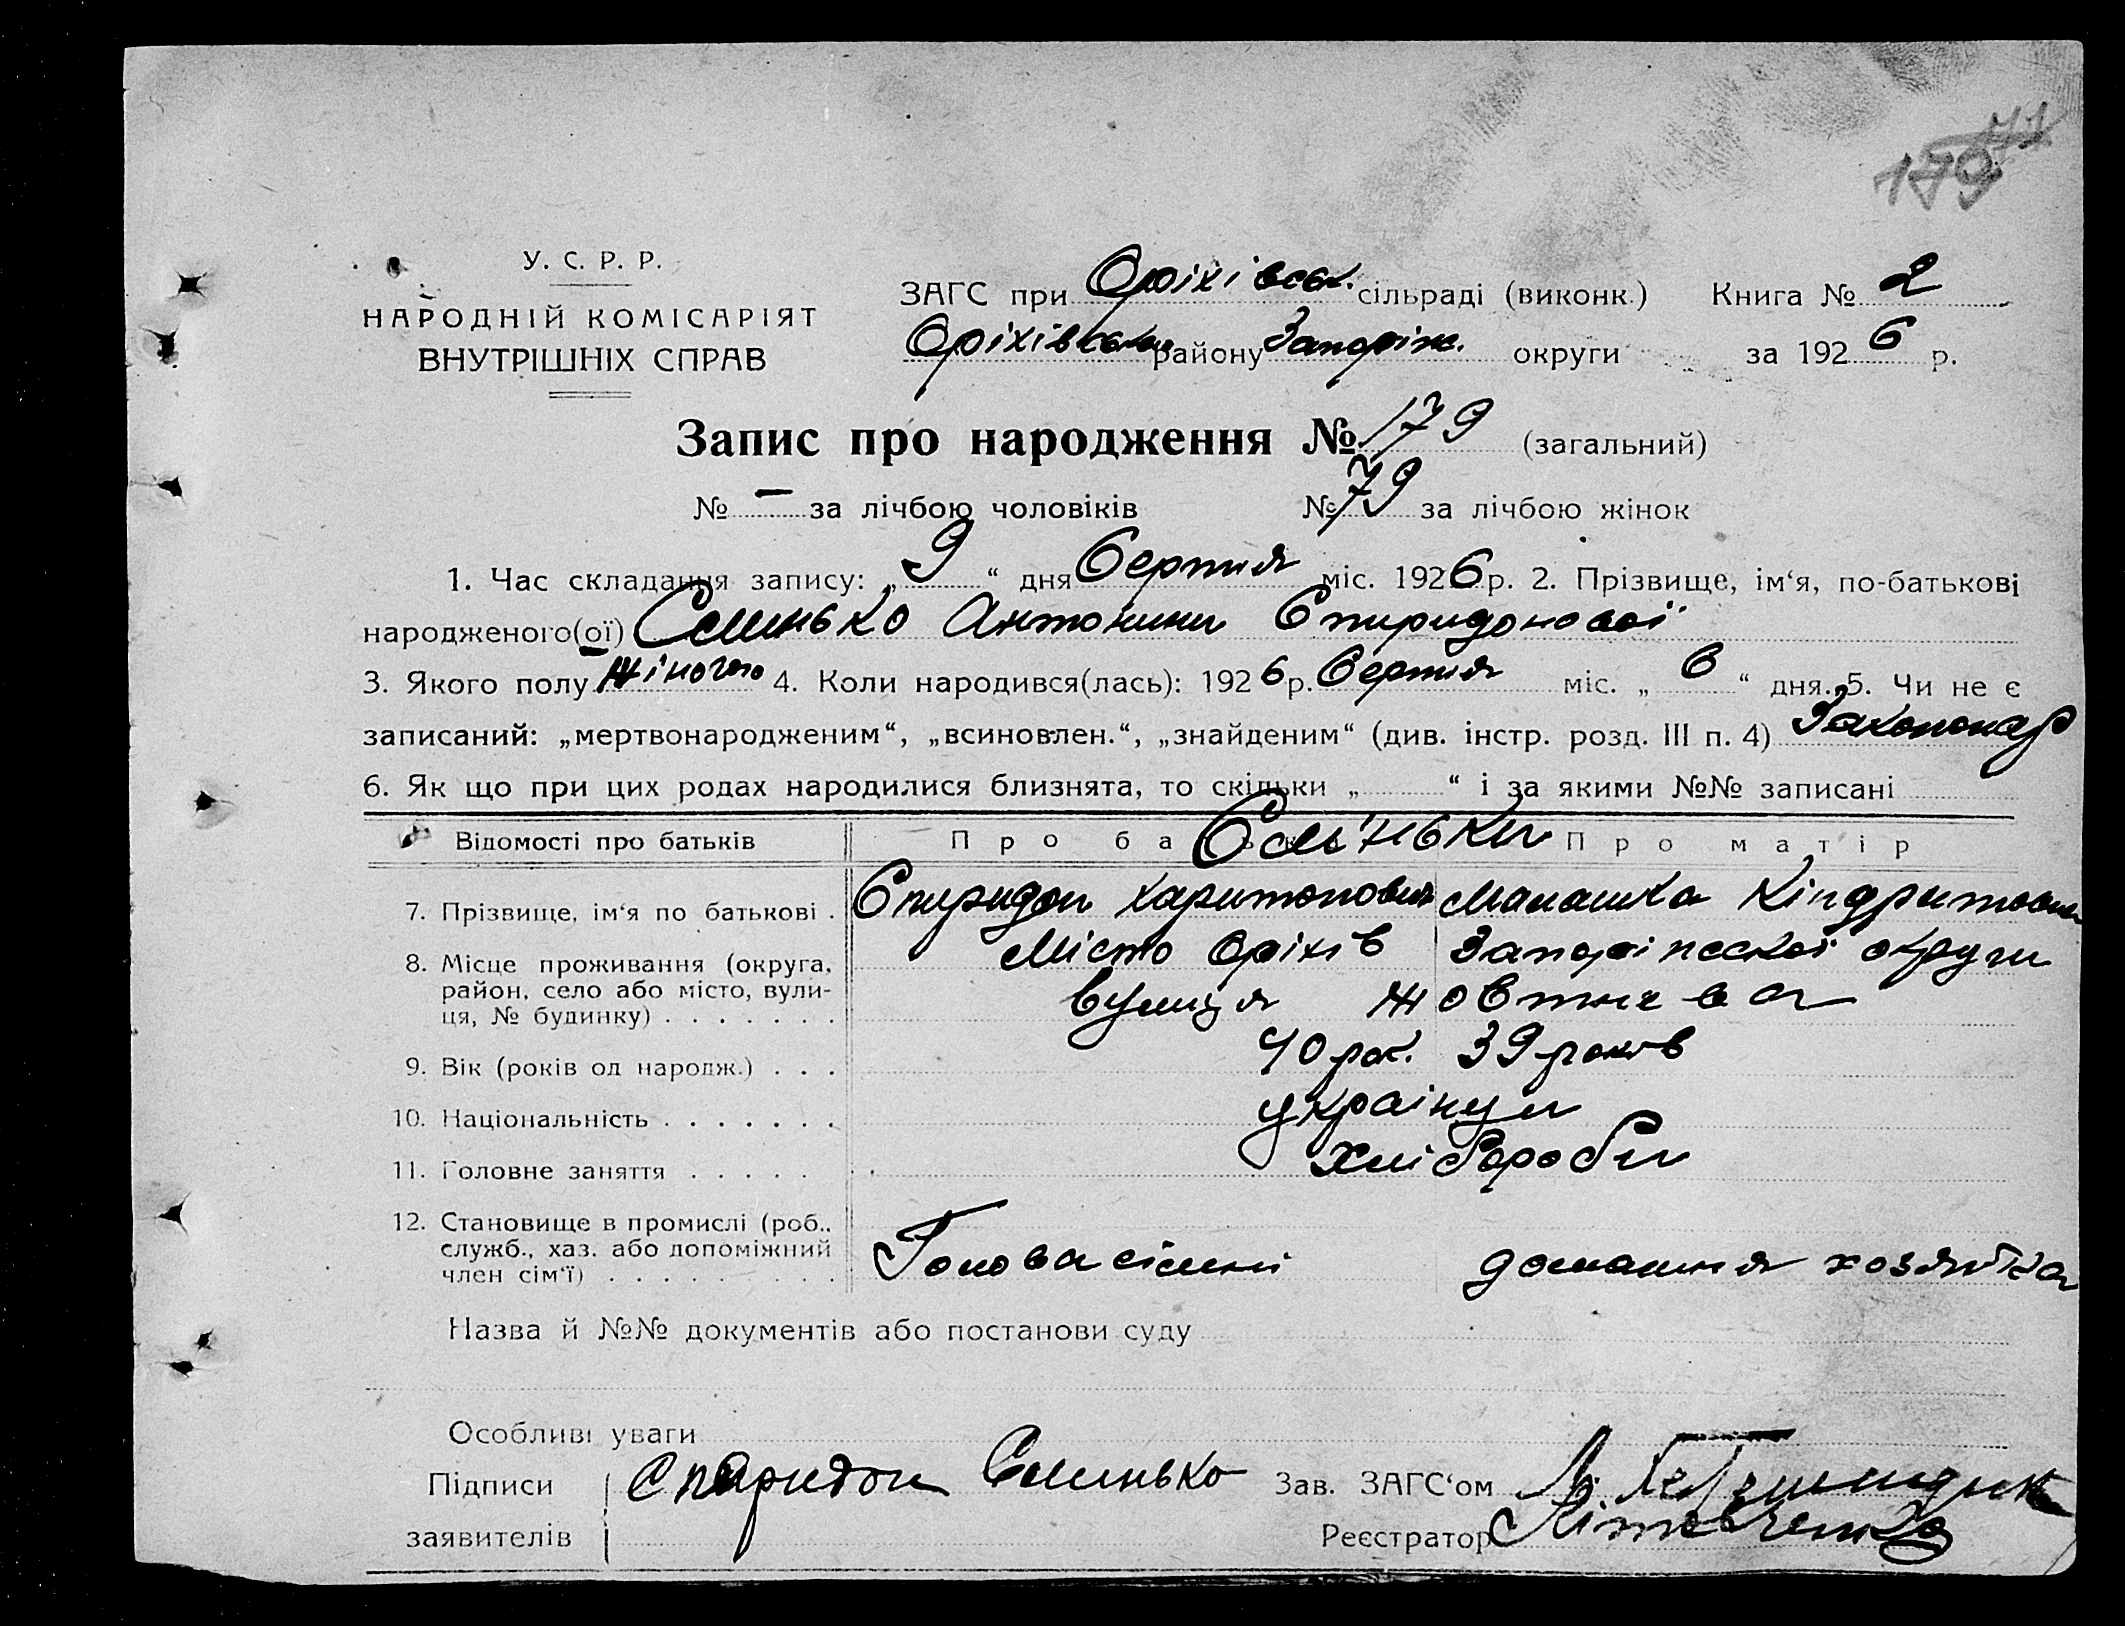 71
179
У. С. Р. Р.
НАРОДНІЙ КОМІСАРІЯТ
ВНУТРІШНІХ СПРАВ
ЗАГС при Оріхівськ. сільраді (виконк.) Книга № 2
Оріхівськ району Запоріж. округи за 1926 р.
Запис про народження № 179 (загальний)
№ — за лічбою чоловіків № 79 за лічбою жінок
1. Час складання запису: „9“ дня Серпня міс. 1926 р. 2. Прізвище, ім‘я, по-батькові
народженого(ої) Антонини Спиридонової
3. Якого полу жіночого 4. Коли народився(лась): 1926 р. Серпня міс. „6“ дня. 5. Чи не є
записаний: „мертвонародженим“, „всиновлен.“, „знайденим“ (див. інстр. розд. III п. 4)
6. Як що при цих родах народилися близнята, то скільки „ “ і за якими №№ записані
Відомості про батьків Про ба Про матір
7. Прізвище, ім‘я по батькові . Спиридон Харитонович Малашка Кіндритовна
8. Місце проживання (округа, район, село або місто, вулиця, № будинку) . . . . . . . Місто Оріхів Запоріжської округи
вулиця Жовтнева
9. Вік (років од народж.) . . . 40 рок. 39 років
10. Національність . . . . . . . українці
11. Головне заняття . . . . . Хлібороби
12. Становище в промислі (роб., служб., хаз. або допоміжний член сім‘ї) . . . . . . . . . Голова сімні домашня хозяйка
Назва й №№ документів або постанови суду
Особливі уваги
Підписи Спиридон Зав. ЗАГС‘ом
заявителів Реєстратор Літовченко